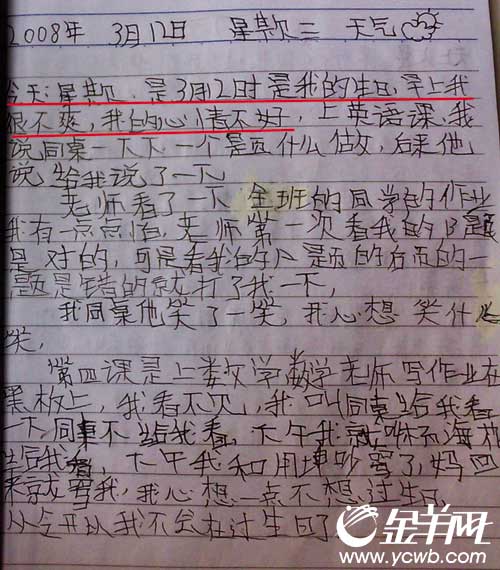 2008年 3月12日 星期三 天气
今天星期 是3月12时是我的生日,早上我
很不爽,我的心情不好,上英语课,我
说同桌一下下一个是页什么做,后来他
说给我说了一下
老师看了一下全班的同学的作业
我有一点点怕,老师第一次看我的 题
是对的,可是看我的 题页的后页的一
题是错的就打了我一下,
我同桌他笑了一笑,我心想笑什么
笑,
第四课是上数学数学老师写作业在
黑板上,我看不见,我叫同桌给我看
一下同桌不给我看,下午我
给我看,下午我和 吵 了妈回
来就骂我,我心想一点不想过生日
从今开以我不会在过生日了
金羊网
www.ycwb.com